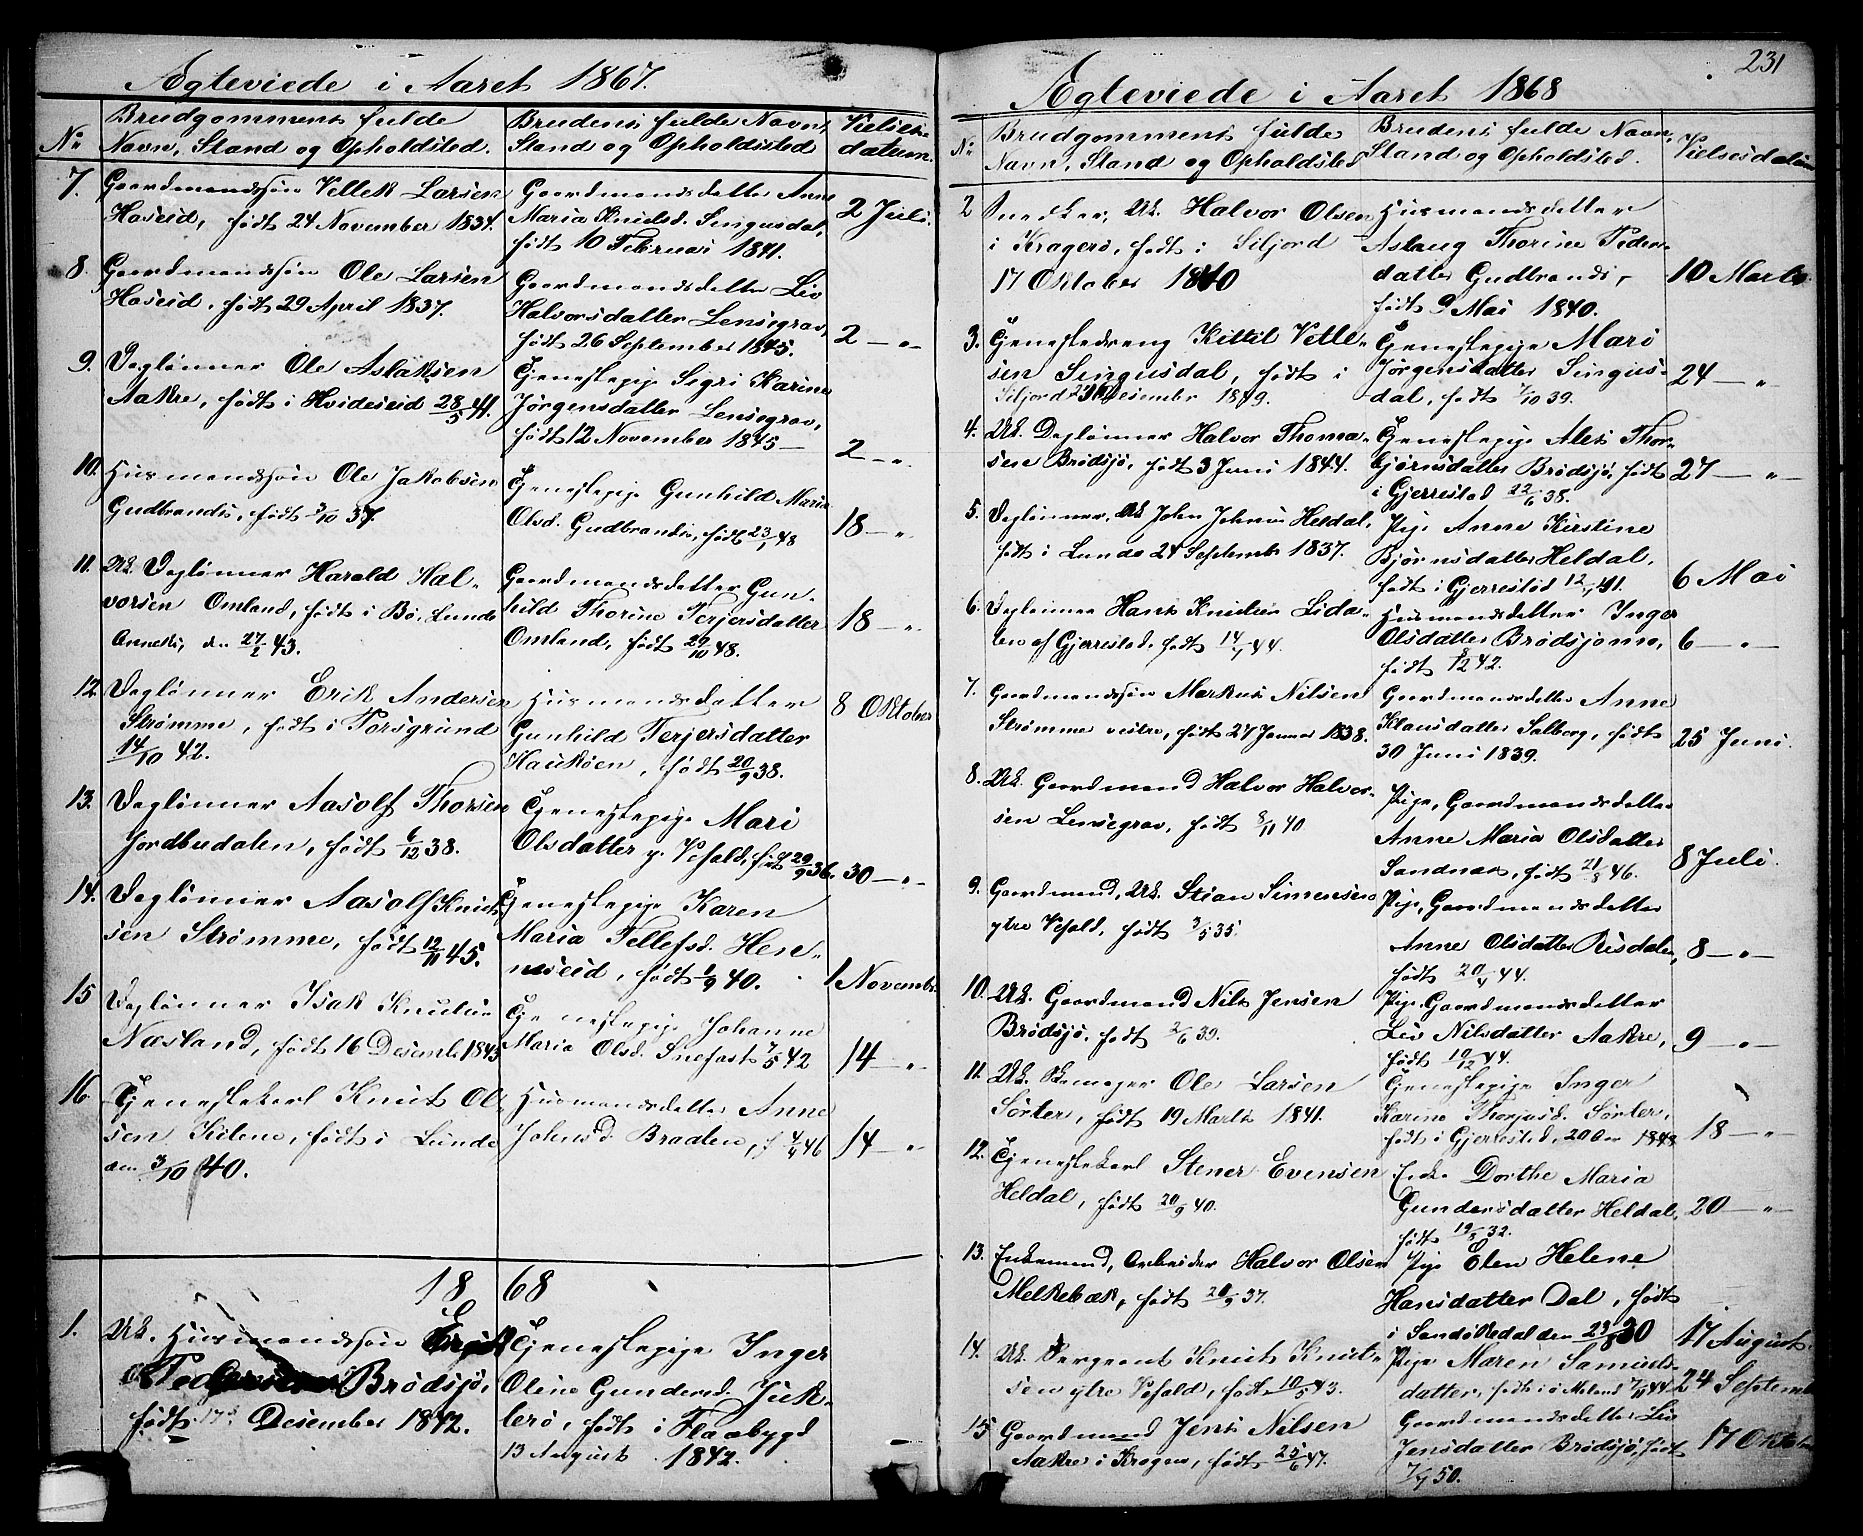 231
Ægteviede i Aaret 1867.
No
Brudgommens fulde
Navn, Stand og Opholdsted.
Brudens fulde Navn,
Stand og Opholdsted
Vielses-
datum.
7. Gaardmandssøn Vettek Larsen
Haseid, født 24 November 1834.
Gaardmandsdatter Anne
Maria Knudsd. Singusdal,
født 10 Februar 1841.
2 Juli.
8. Gaardmandssøn Ole Larsen
Haseid, født 29 April 1837.
Gaardmandsdatter Liv
Halvorsdatter Lensegrav,
født 26 September 1845.
2 — „
9. Daglønner Ole Aslaksen
Aakre, født i Hvideseid 28/5 41.
Tjenestepige Segri Karine
Jørgensdatter Lensegrav,
født 12 November 1845 —
2 — „
10. Husmandssøn Ole Jakobsen
Gudbrands, født 3/10 37.
Tjenestepige Gunhild Maria
Olsd. Gudbrands, født 23/1 48
18 — „
11. Uk. Daglønner Harald Hal-
vorsen Omland, født i Bø, Lunde
Anneks, den 27/2 43.
Gaardmandsdatter Gun-
hild Thorine Terjersdatter
Omland, født 29/10 48.
18 — „
12. Daglønner Erik Andersen
Strømme, født i Porsgrund
14/10 42.
Husmandsdatter
Gunhild Terjersdatter
Haukøen, født 20/9 38.
8 Oktober
13. Daglønner Aasolf Thorsen
Jordbudalen, født 6/12 38.
Tjenestepige Mari
Olsdatter y. Vefald, født 29/9 36.
30 — „
14. Daglønner Aasolf Knut-
sen Strømme, født 12/11 45.
Tjenestepige Karen
Maria Tellefsd. Hen-
seid, født 1/9 40.
1 Novemb.
15 Daglønner Isak Knutsen
Næsland, født 16 Desemb. 1843
Tjenestepige Johanne
Maria Olsd. Snefast 7/5 42
14 — „
16 Tjenestekarl Knut Ol-
sen Kilene, født i Lunde
den 3/10 40.
Husmandsdatter Anne
Johnsd. Braaten, f. 4/4 46
14 — „
1868
1. Uk. Husmandssøn Erik
Pedersen Brødsjø,
født 17de Desember 1842.
Tjenestepige Inger
Oline Gundersd. Juk-
lerø, født i Flaabygd
13 August 1842.
Ægteviede i Aaret 1868
No
Brudgommens fulde
Navn, Stand og Opholdsted
Brudens fulde Navn,
Stand og Opholdsted.
Vielsesdatum
2 Snedker, Uk. Halvor Olsen
i Kragerø, født i Siljord
17 Oktober 1840
Husmandsdatter
Aslaug Thorine Peder-
datter Gudbrands,
født 9 Mai 1840.
10 Marts
3. Tjenestedreng Kittil Vetle-
sen Singusdal, født i
Siljord Desember 1849.
Tjenestepige Mari
Jørgensdatter Singus-
dal, født 7/10 39.
24 — „
4. Uk. Daglønner Halvor Thoma-
sen Brødsjø, født 3 Juni 1844.
Tjenestepige Alet Thor-
bjørnsdatter Brødsjø, født
i Gjerrestad 22/6 38.
27 — „
5. Daglønner, Uk John Johnsen Heldal,
født i Lunde 24 September 1837.
Pige Anne Kirstine
Bjørnsdatter Heldal,
født i Gjerrestad 12/1 41.
6 Mai
6. Daglønner Hans Knutsen Lida-
len af Gjerrestad, født 14/1 44.
Husmandsdatter Inger
Olsdatter Brødsjømo,
født 8/12 42.
6 — „ —
7. Gaardmandssøn Markus Nilsen
Strømme vestre, født 27 Januar 1838.
Gaardmandsdatter Anne
Klausdatter Solberg, født
30 Juni 1839.
25 Juni.
8. Uk. Gaardmand Halvor Halvor-
sen Lensegrav, født 8/11 40.
Pige, Gaardmandsdatter
Anne Maria Olsdatter
Sandnæs, født 21/8 46.
8 Juli.
9. Gaardmand, Uk. Stian Simensen
ytre Vefald, født 3/5 35.
Pige, Gaardmandsdatter
Anne Olsdatter Risdalen,
født 20/4 44.
8 — „ —
10. Uk. Gaardmand Nils Jensen
Brødsjø, født 2/6 39.
Pige, Gaardmandsdatter
Liv Nilsdatter Aakre,
født 10/12 44.
9 — „ —
11. Uk. Skomager Ole Larsen
Sørter, født 19 Marts 1841.
Tjenestepige Inger
Karine Thorjusd. Sørter,
født i Gjerrestad, 20 1848
18 — „
12. Tjenestekarl Stener Evensen
Heldal, født 20/9 40.
Enke Dorthe Maria
Gundersdatter Heldal,
født 19/5 32.
20 — „ —
13. Enkemand, Arbeider Halvor Olsen
Melkebæk, født 20/9 37.
Pige Elen Helene
Hansdatter Dal, født
i Sandøkedal den 23/8 30
17 August
14. Uk. Sergeant Knut Knut-
sen ytre Vefald, født 10/5 43.
Pige Maren Samuels-
datter, født i ø Meland 7/11 44.
24 Septemb
15 Gaardmand Jens Nilsen
Aakre i Kragerø, født 25/6 47.
Gaardmandsdatter Liv
Jensdatter Brødsjø, født
7/7 50.
17 Oktober